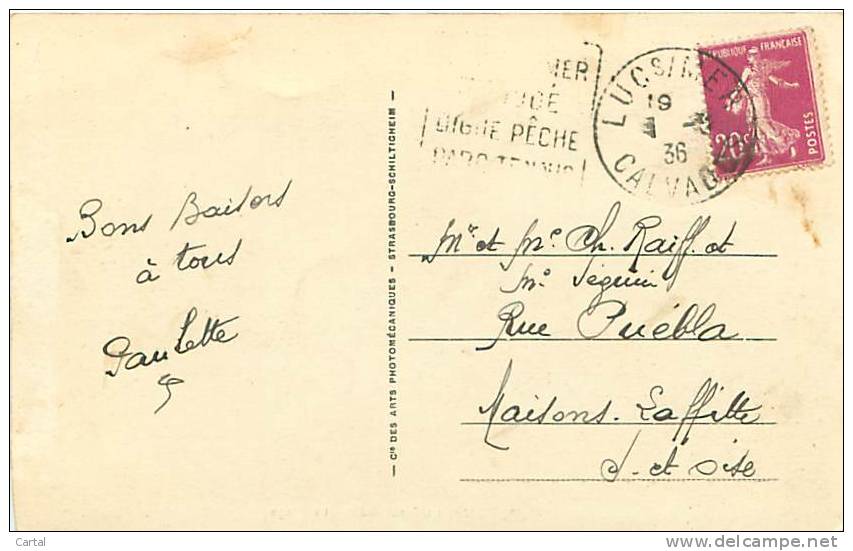 Bons Baisers
à tous
Paulette
Cie DES ARTS PHOTOMÉCANIQUES - STRASBOURG-SCHILTIGHEIM
DIGUE PÊCHE
LUC S/ MER
19
36
CALVADOS
RÉPUBLIQUE FRANÇAISE
20c
POSTES
Mr et Me Ch. Raiff. et
Me Séguin
Rue Puébla
Maisons-Laffitte
S. et Oise
Cartal
www.delcampe.net